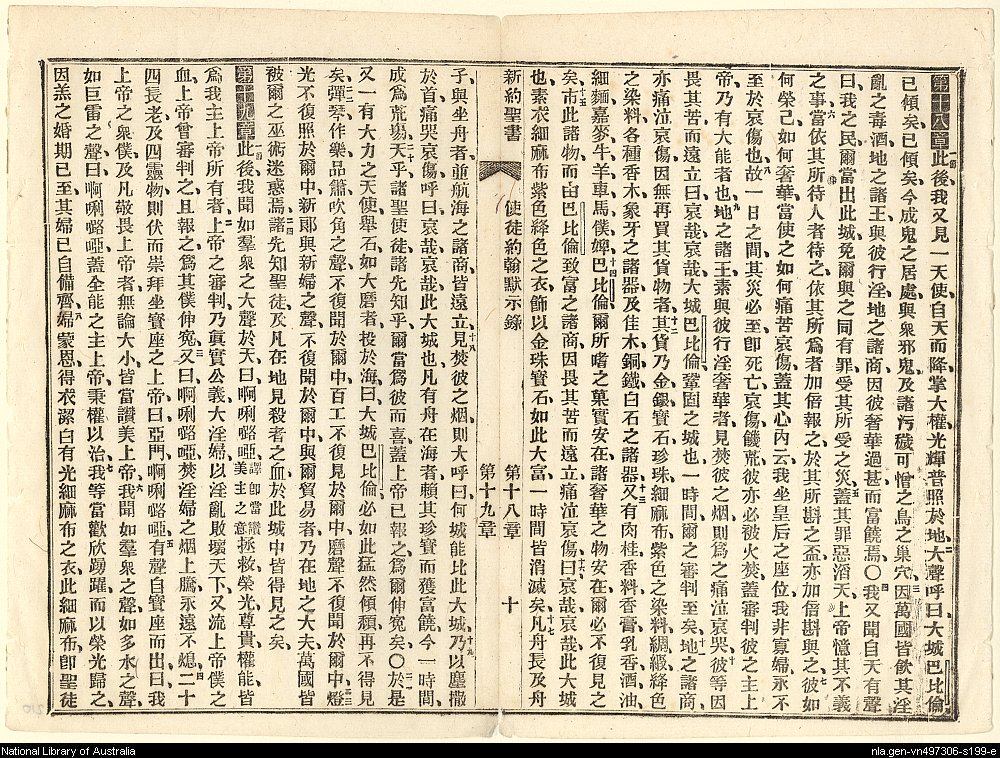 第十八章此後我又見一天使自天而降掌大權光輝普照於地大聲呼曰大城巴比倫
已傾矣已傾矣今成鬼之居處與衆邪鬼及諸污穢可憎之鳥之巢穴因萬國皆飲其淫
亂之毒酒地之諸王與彼行淫地之諸商因彼奢華過甚而富饒焉〇我又聞自天有聲
曰我之民爾當出此城免爾與之同有罪受其所受之災蓋其罪惡滔天上帝憶其不義
之事當依其所待人者待之依其所爲者加倍報之於其所斟之盃亦加倍斟與之彼如
何榮己如何奢華當使之如何痛苦哀傷蓋其心內云我坐皇后之座位我非寡婦永不
至於哀傷也故一日之間其災必至卽死亡哀傷饑荒彼亦必被火焚蓋審判彼之主上
帝乃有大能者也地之諸王素與彼行淫奢華者見焚彼之烟則爲之痛泣哀哭彼等因
畏其苦而遠立曰哀哉哀哉大城巴比倫鞏固之城也一時間爾之審判至矣地之諸商
亦痛泣哀傷因無再買其貨物者其貨乃金銀寶石珍珠細麻布紫色之染料綢緞絳色
之染料各種香木象牙之諸器及佳木銅鐵白石之諸器又有肉桂香料香膏乳香酒油
細麵嘉麥牛羊車馬僕婢巴比倫爾所嗜之菓實安在諸奢華之物安在爾必不復見之
矣市此諸物而由巴比倫致富之諸商因畏其苦而遠立痛泣哀傷曰哀哉哀哉此大城
也素衣細麻布紫色絳色之衣飾以金珠寶石如此大富一時間皆消滅矣凡舟長及舟
新約聖書　使徒約翰默示錄　第十八章　第十九章　十
子與坐舟者並航海之諸商皆遠立見焚彼之烟則大呼曰何城能比此大城乃以塵撒
於首痛哭哀傷呼曰哀哉哀哉此大城也凡有舟在海者賴其珍寶而獲富饒今一時間
成爲荒塲天乎諸聖使徒諸先知乎爾當爲彼而喜蓋上帝已報之爲爾伸寃矣〇於是
又一有大力之天使舉石如大磨者投於海曰大城巴比倫必如此猛然傾頹再不得見
矣彈琴作樂品簫吹角之聲不復聞於爾中百工不復見於爾中磨聲不復聞於爾中燈
光不復照於爾中新郞與新婦之聲不復聞於爾中與爾貿易者乃在地之大夫萬國皆
被爾之巫術迷惑焉諸先知聖徒及凡在地見殺者之血於此城中皆得見之矣
第十九章此後我聞如羣衆之大聲於天曰啊唎嚕啞譯卽當讚美主之意拯救榮光尊貴權能皆
爲我主上帝所有者上帝之審判乃眞實公義大淫婦以淫亂敗壞天下又流上帝僕之
血上帝曾審判之且報之爲其僕伸寃又曰啊唎嚕啞焚淫婦之烟上騰永遠不熄二十
四長老及四靈物則伏而崇拜坐寶座之上帝曰亞門啊唎嚕啞有聲自寶座而出曰我
上帝之衆僕及凡敬畏上帝者無論大小皆當讚美上帝我聞如羣衆之聲如多水之聲
如巨雷之聲曰啊唎嚕啞蓋全能之主上帝秉權以治我等當歡欣踴躍而以榮光歸之
因羔之婚期已至其婦已自備齊婦蒙恩得衣潔白有光細麻布之衣此細麻布卽聖徒
National Library of Australia
nla.gen-vn497306-s199-e